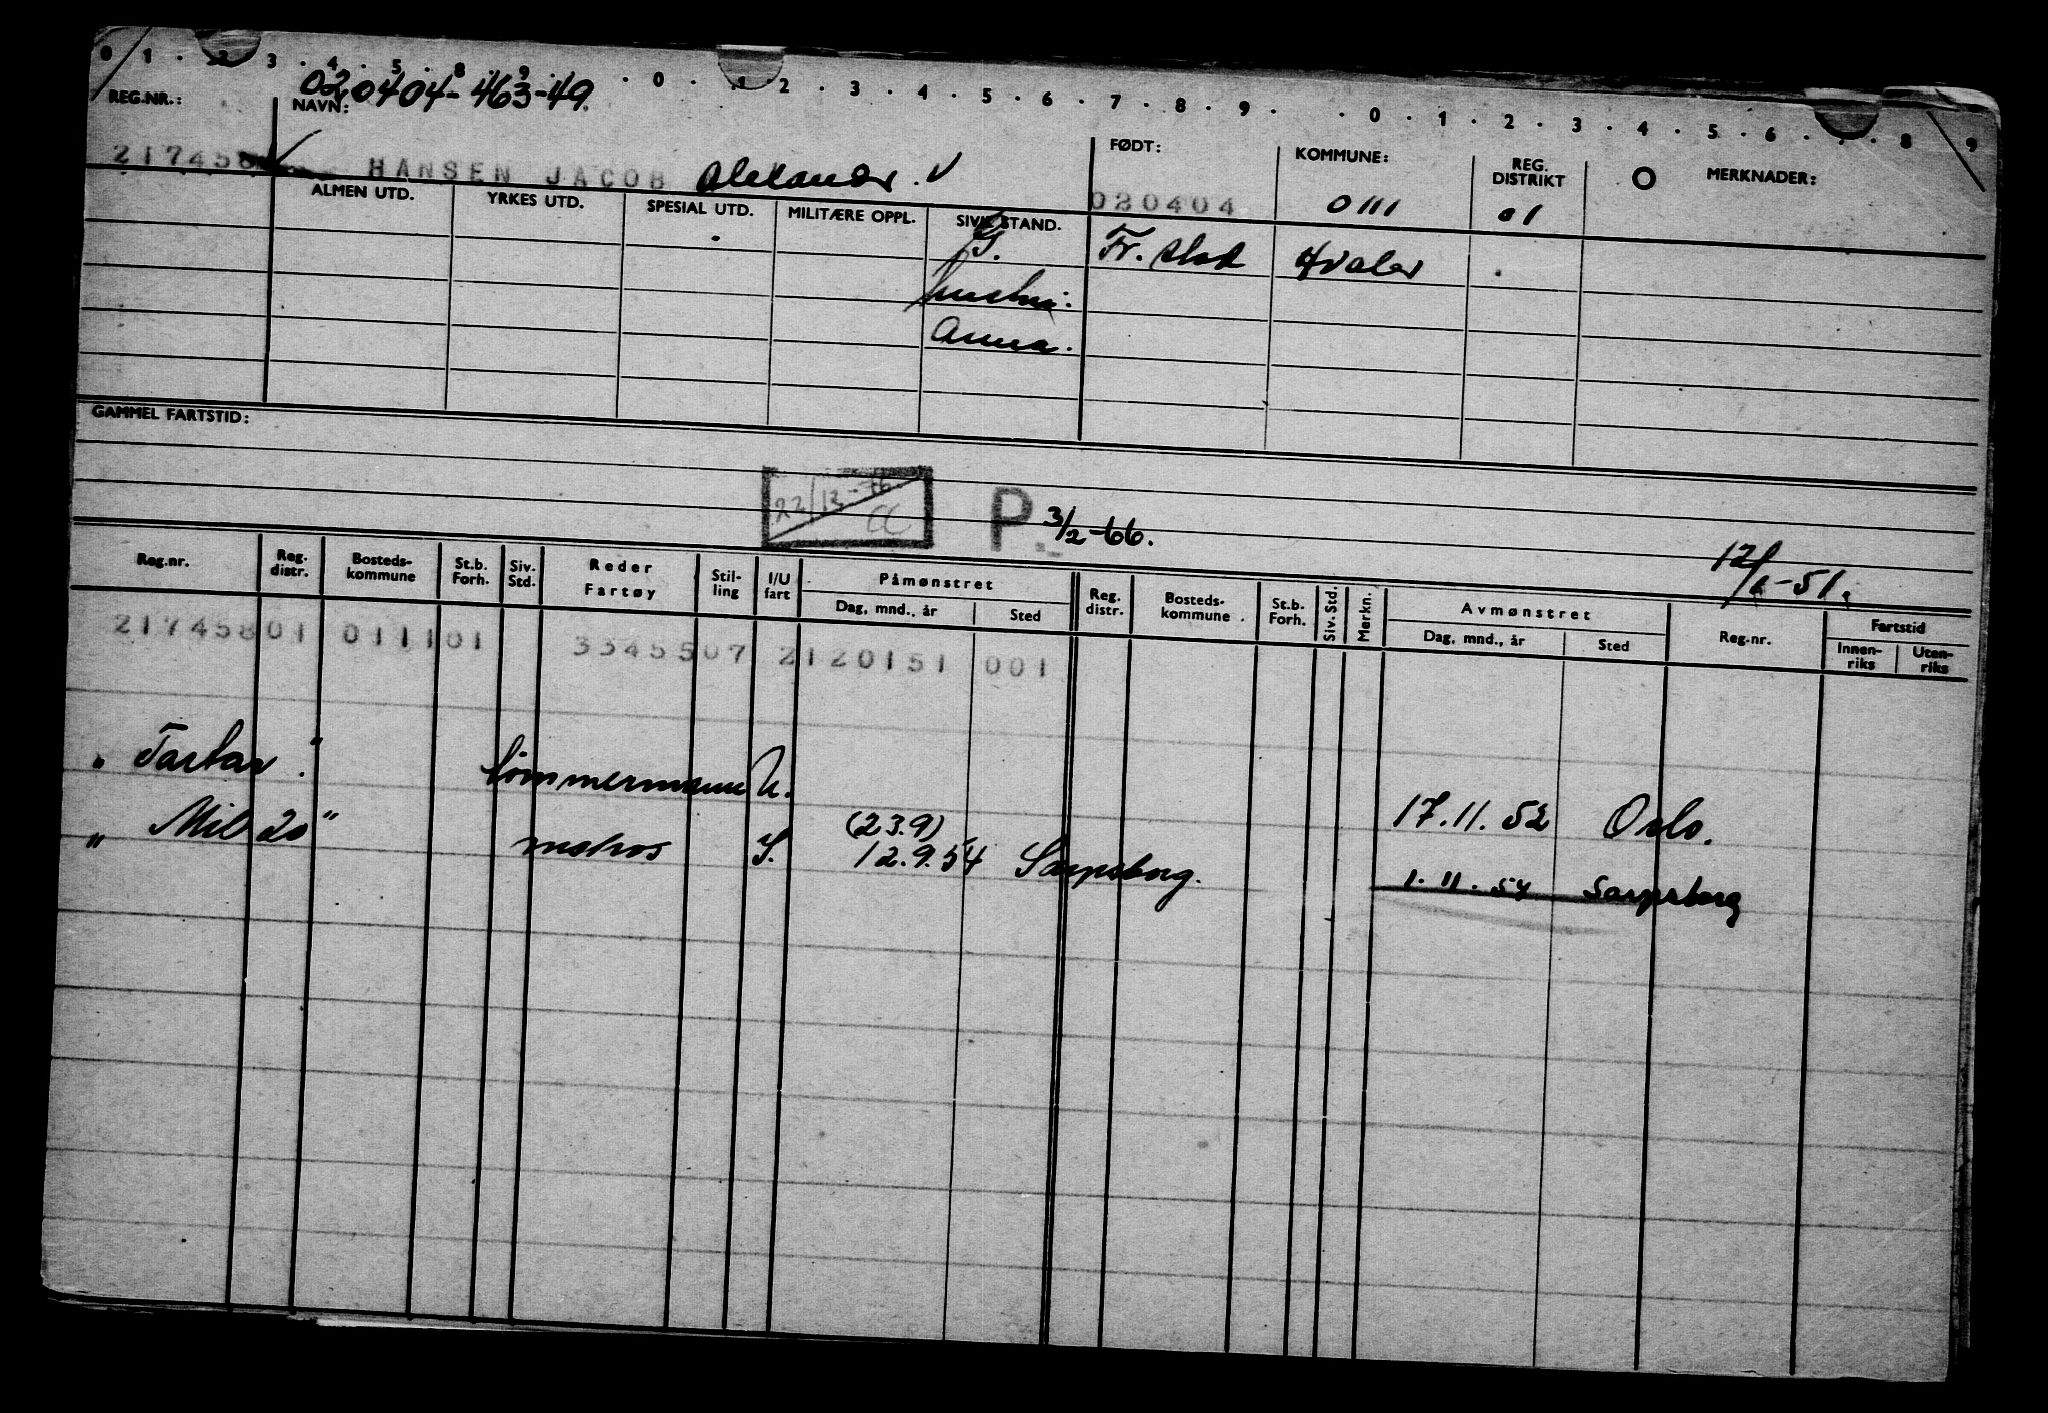 0 1 . 2 3 . 4 . 5 . 8 . 9 . . 0 . 1 2 2 . 3 . 4 . 5 . 6 . 7 . 8 . 9 . . 0 . 1 . 2 . 3 . 4 . 5 . 6 . 7 . 8 9
020404-463-49.
REG.NR.: NAVN: FØDT: KOMMUNE: REG. DISTRIKT O MERKNADER:
217458 HANSEN JACOB Alexander. V 020404 0111 01
ALMEN UTD. YRKES UTD. SPESIAL UTD. MILITÆRE OPPL. SIVIL STAND.
G. Fr.stad Hvaler
hustru:
Anna.
GAMMEL FARTSTID:
22/12-76 CC
P. 3/2-66.
12/1-51.
Reg.nr. Reg. distr. Bosteds-kommune St.b. Forh. Siv. Std. Reder Fartøy Stil-ling I/U fart Påmønstret Reg. distr. Bosteds-kommune St.b. Forh. Siv. Std. Merkn. Avmønstret Reg.nr. Fartstid
Dag, mnd., år Sted Dag, mnd., år Sted Innen-riks Uten-riks
217458 01 0111 01 33455 07 2 120151 001
"Tartar." tømmermann U. 17.11.52 Oslo.
(23.9)
"Mil 20" matros I. 12.9.54 Sarpsborg. 1.11.54 Sarpsborg